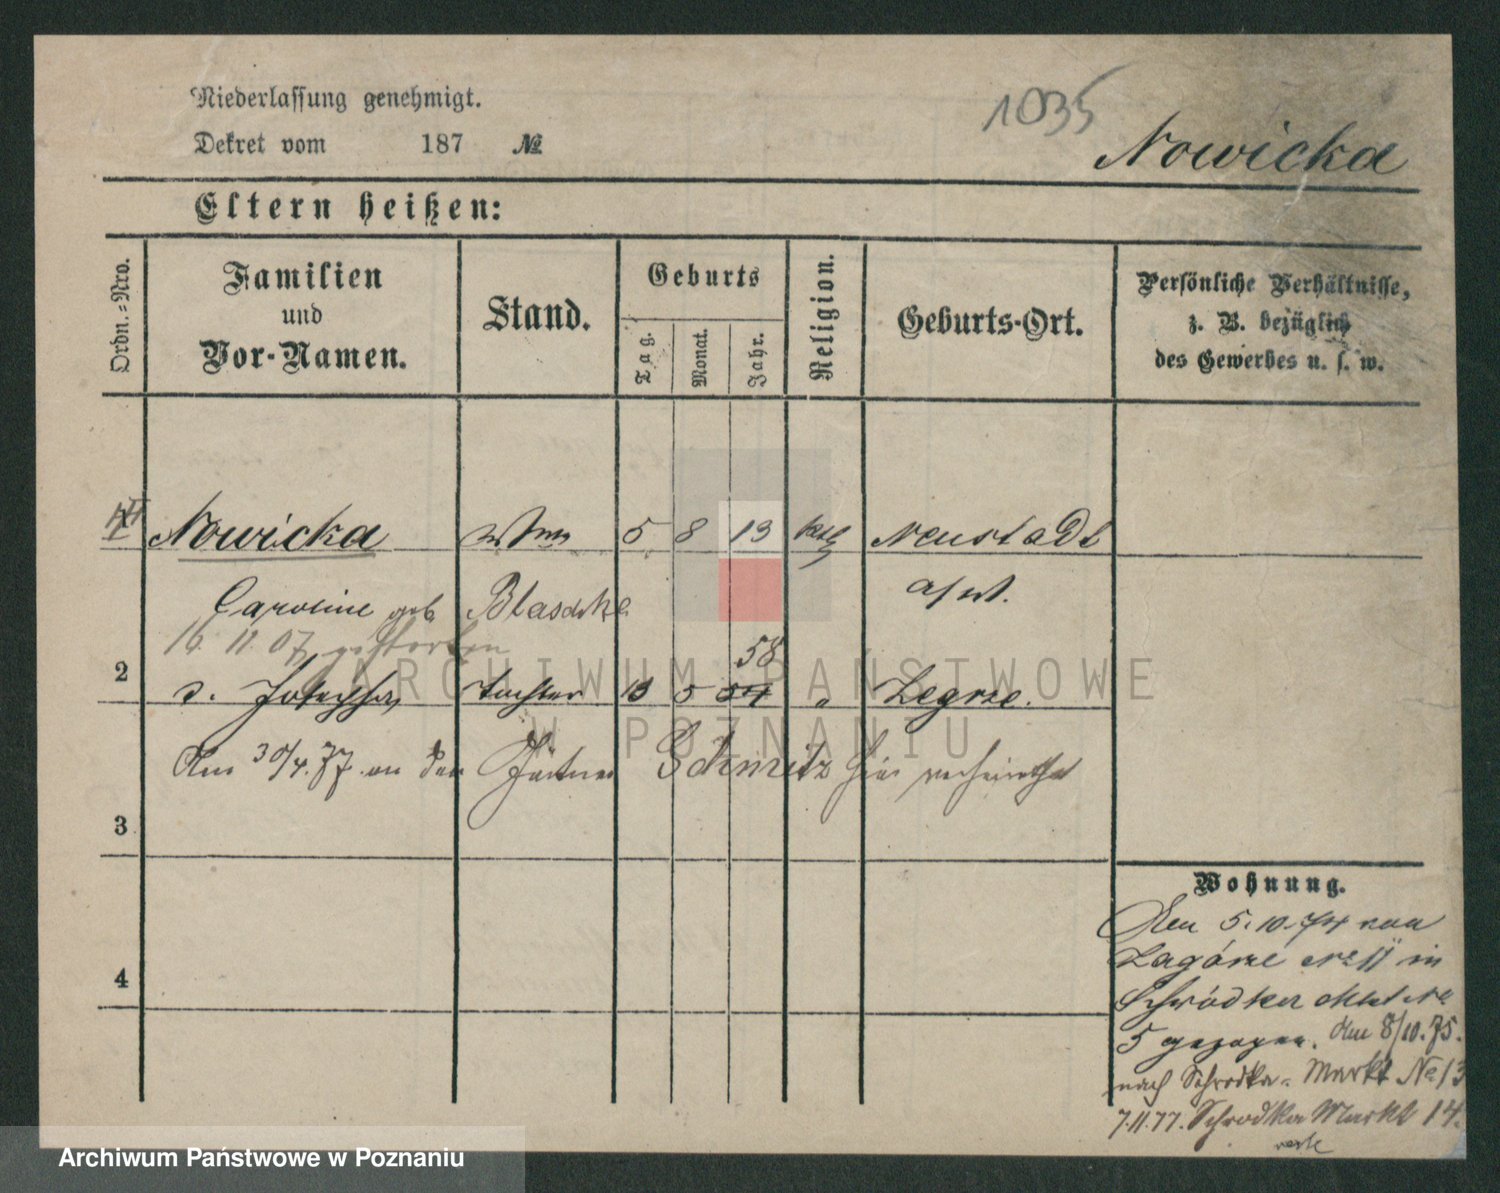 Niederlassung genehmigt.
Dekret vom 187 №
1035
Nowicka
Eltern heißen:
Ordn.-Nro.
Familien und Vor-Namen.
Stand.
Geburts
Tag.
Monat.
Jahr.
Religion.
Geburts-Ort.
Persönliche Verhältnisse,
z. B. bezüglich
des Gewerbes u. s. w.
Nowicka Wwe 5 8 13 kth Neustadt
Caroline geb Blaschke a/W.
16. 11. 07 gestorben
58
2 d. Josepha Tochter 13 5 54 " Zegrze.
Am 30/4. 77 an den Gärtner Schmitz hier verheirathet
3
4
Wohnung.
Den 5. 10. 74 von
Zagórze № 11 in
Schrodka Mkt №
5 gezogen. Am 8/10. 75.
nach Schrodka-Markt № 13
7. 11. 77. Schrodka Markt 14.
ARCHIWUM PAŃSTWOWE
W POZNANIU
Archiwum Państwowe w Poznaniu